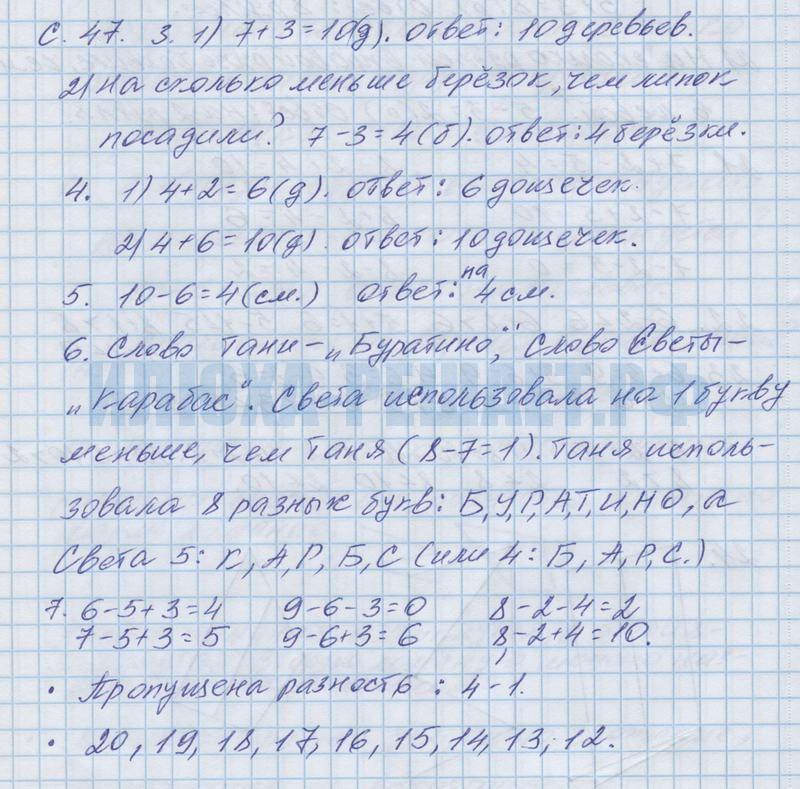 с. 47. 3. 1) 7+3=10(д). ответ: 10 деревьев.
2) На сколько меньше берёзок, чем липок
посадили? 7-3=4(б). ответ: 4 берёзки.
4. 1) 4+2=6(д). ответ: 6 дощечек.
2) 4+6=10(д). ответ: 10 дощечек.
5. 10-6=4(см.) ответ: на 4 см.
6. Слово Тани - „Буратино", слово Светы -
„Карабас". Света использовала на 1 букву
меньше, чем Таня (8-7=1). Таня исполь-
зовала 8 разных букв: Б,У,Р,А,Т,И,Н,О, а
Света 5: К,А,Р,Б,С (или 4: Б,А,Р,С.)
7. 6-5+3=4 9-6-3=0 8-2-4=2
7-5+3=5 9-6+3=6 8-2+4=10.
• Пропущена разность: 4-1.
• 20, 19, 18, 17, 16, 15, 14, 13, 12.